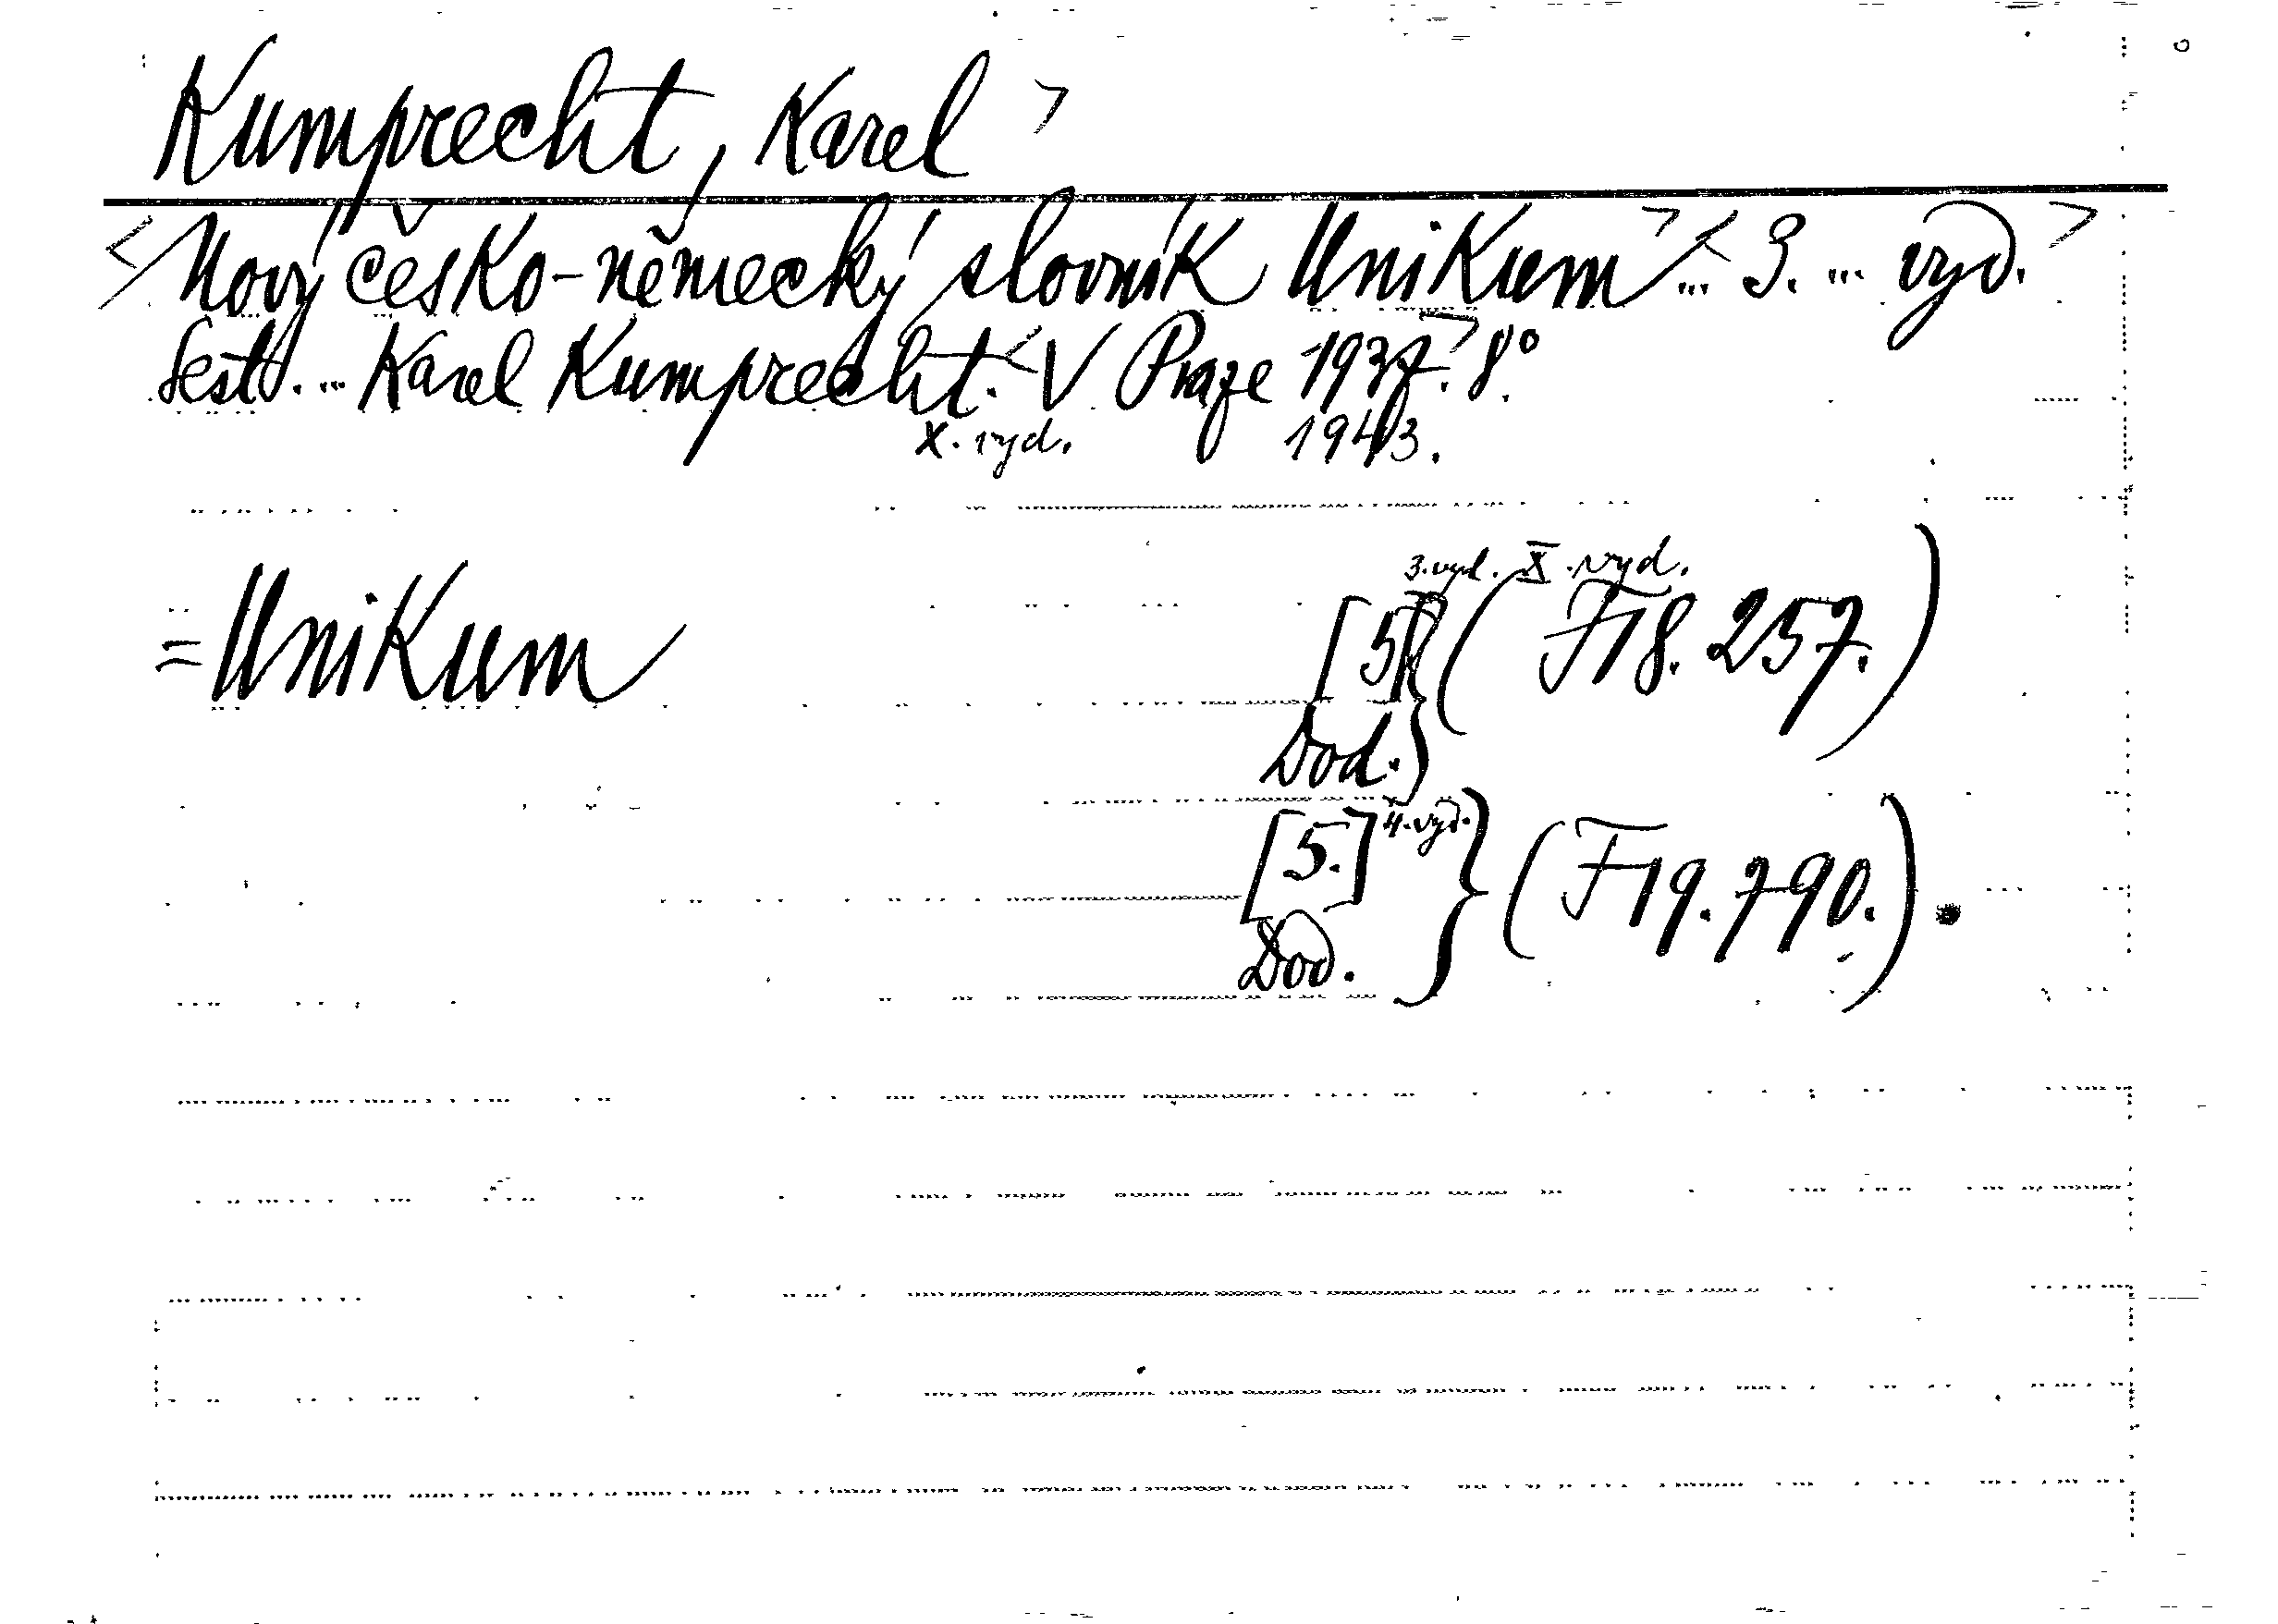 Kumprecht, Karel >
< Nový česko-německý slovník Unikum > ... < 3. ... vyd. >
Sest. ... Karel Kumprecht. < V Praze 1937. > 8°.
X. vyd. 1943.
3. vyd. X. vyd.
= Unikum [5.] ( F 18. 257. )
Dod. }
[5.] 4. vyd. } ( F 19. 790. ) .
Dod.